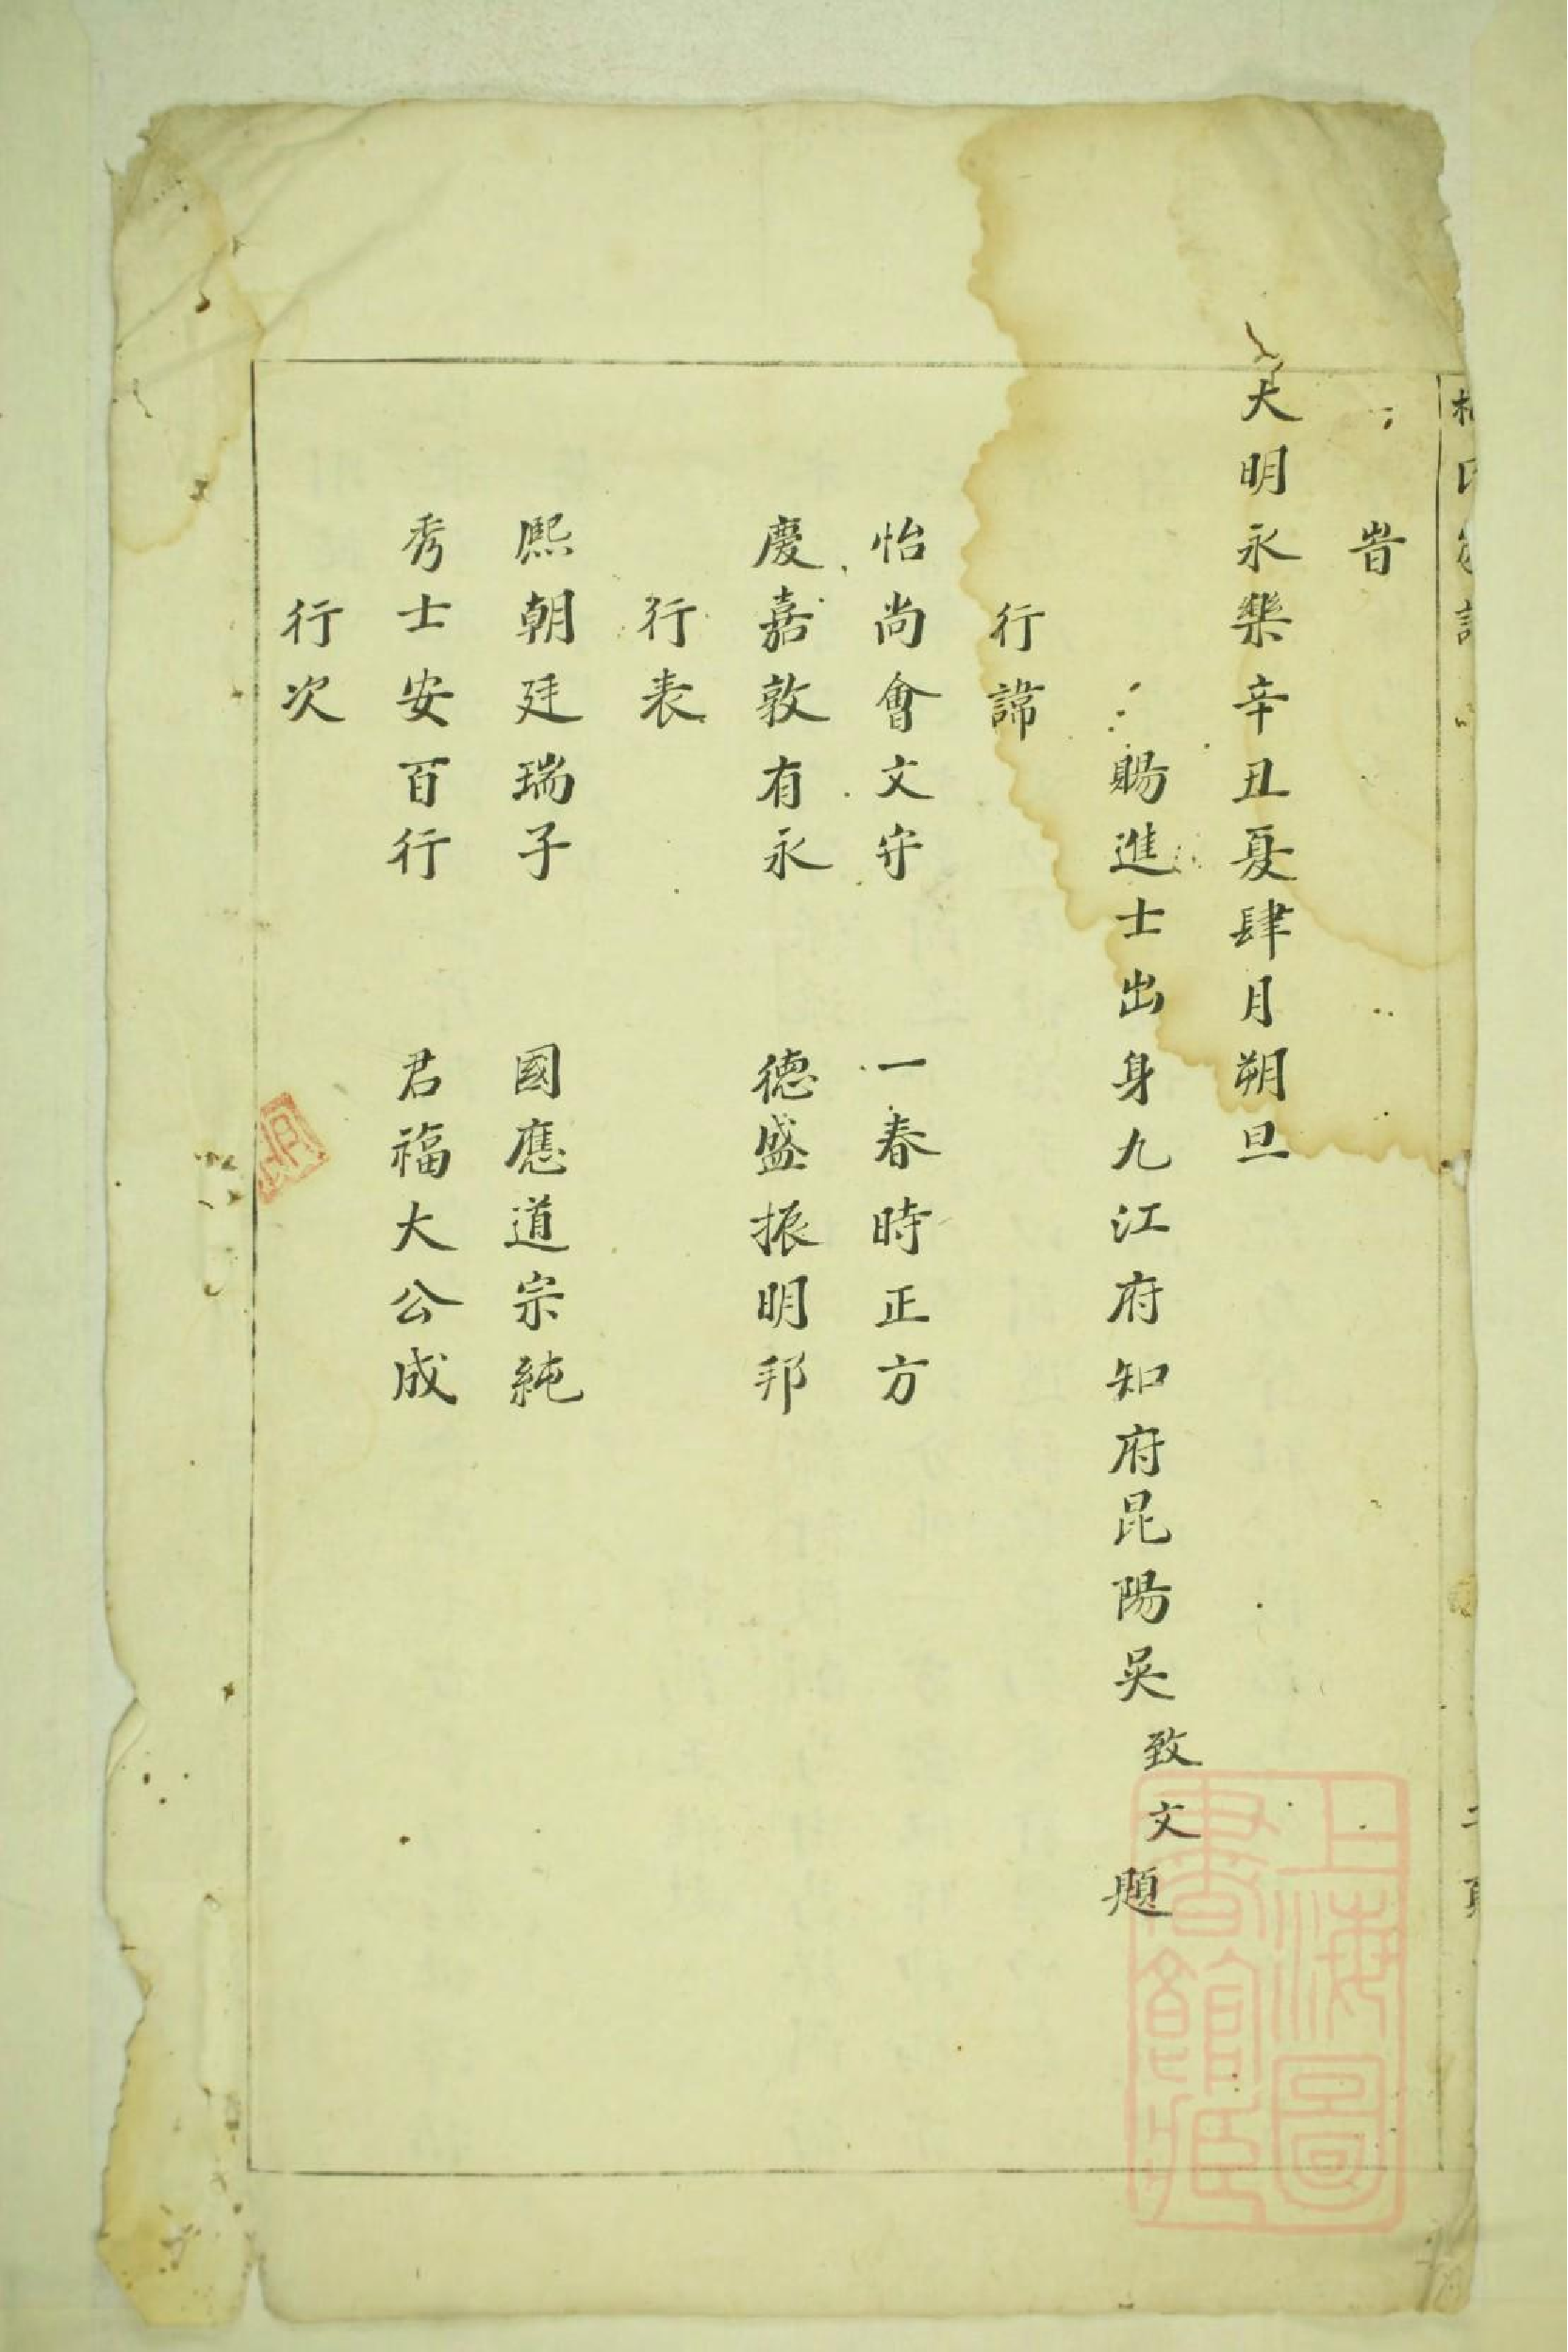 旹
大明永樂辛丑夏肆月朔旦
賜進士出身九江府知府昆陽吴致文題
行諱
怡尚會文守 一春時正方
慶嘉敦有永 德盛振明邦
行表
熈朝廷瑞子 國應道宗純
秀士安百行 君福大公成
行次
上海圖
書館藏